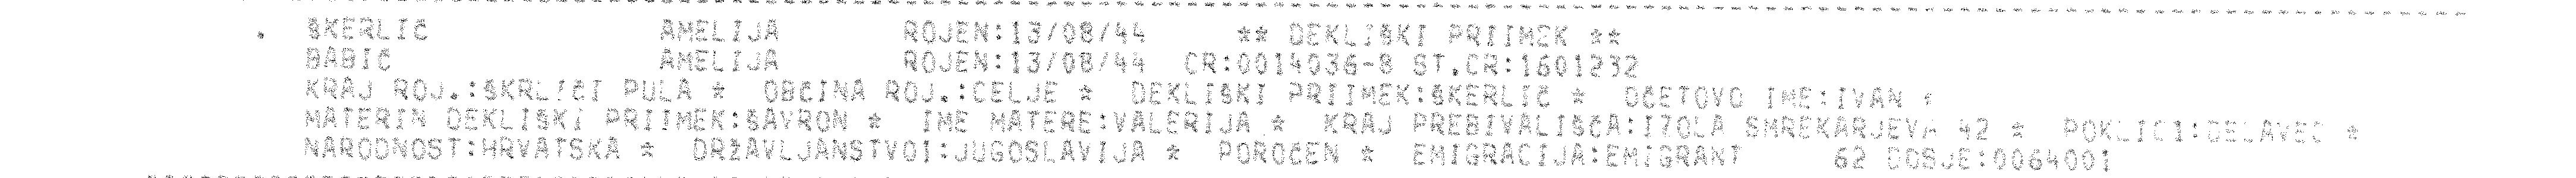 ŠKERLIČ AMELIJA ROJEN:13/08/44 ** DEKLIŠKI PRIIMEK **
BABIČ AMELIJA ROJEN:13/08/44 CR:0014036-8 ST.CR:1601232
KRAJ ROJ.:ŠKRLIČI PULA * OBČINA ROJ.:CELJE * DEKLIŠKI PRIIMEK:ŠKERLIČ * OČETOVO IME:IVAN *
MATERIN DEKLIŠKI PRIIMEK:ŠAVRON * IME MATERE:VALERIJA * KRAJ PREBIVALIŠČA:IZOLA SMREKARJEVA 42 * POKLIC1:DELAVEC *
NARODNOST:HRVATSKA * DRŽAVLJANSTVO1:JUGOSLAVIJA * POROČEN * EMIGRACIJA:EMIGRANT 62 DOSJE:0064001